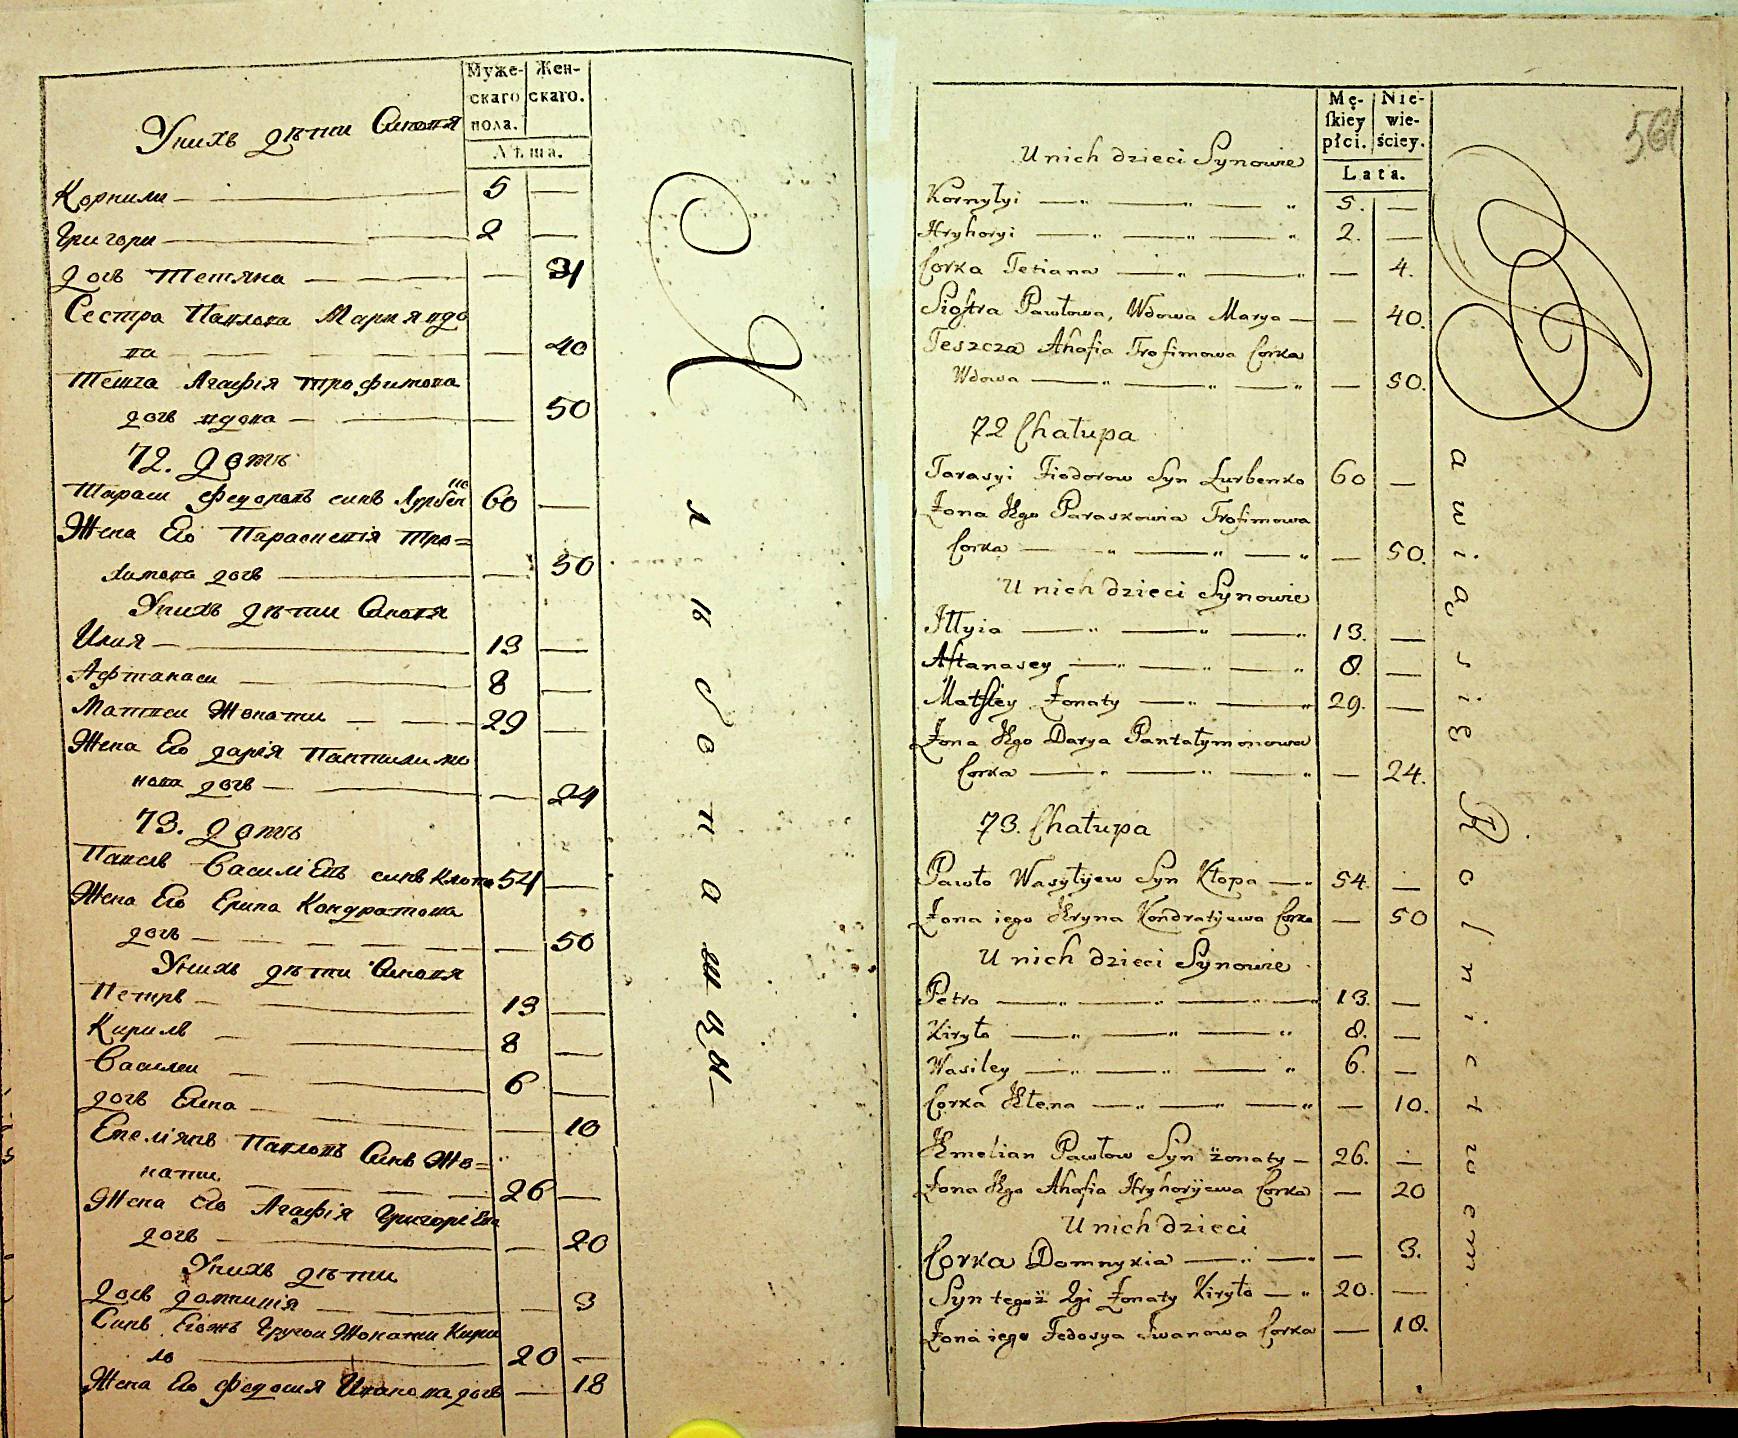 Муже-
скаго
пола.
Жен-
скаго.
Лѣта.
Унихъ дѣти Синовя
Корнили 5 —
Григори 2 —
дочъ Тетяна — 4
Сестра Павлова Мария вдо
ва — 40
Теща Агафія Трофимова
дочъ вдова — 50
72. Домъ
Тараси Федоровъ синъ Лурбен
но
60 —
Жена Его Параскевія Тро=
химова дочъ — 50
Унихъ дѣти Синовя
Илия 13 —
Афтанаси 8 —
Матвеи Жонати 29 —
Жена Его дарія Пантилимо
нова дочъ — 24
73. Домъ
Павелъ Василіевъ синъ Клопа 54 —
Жена Его Ерина Кондратова
дочъ — 50
Унихъ дѣти Синовя
Петръ 13 —
Кирилъ 8 —
Васили 6 —
дочъ Елена — 10
Емеліянъ Павловъ Синъ Жо=
нати 26 —
Жена Его Агафія Григоріева
дочъ — 20
Унихъ дѣти
Дочъ домникія — 3
Синъ Егожъ Другои Жонати Кири
ло 20 —
Жена Его Федосия Иванова дочъ — 18
Хлѣбопашцы
Mę-
skiey
płci.
Nie-
wie-
ściey.
Lata.
561
U nich dzieci Synowie
Kornyłyi 5. —
Hryhoryi 2. —
Corka Tetiana — 4.
Siostra Pawłowa, Wdowa Marya — 40.
Teszcza Ahafia Trofimowa Corka
Wdowa — 50.
72 Chałupa
Tarasyi Fiodorow Syn Lurbenko 60 —
Żona Jego Paraskowia Trofimowa
Corka — 50.
U nich dzieci Synowie
Illyia 13. —
Aftanasey 8. —
Matfiey Żonaty 29. —
Żona Jego Darya Pantałymonowa
Corka — 24.
73. Chałupa
Pawło Wasyłyiew Syn Kłopa 54. —
Żona iego Jryna Kondratyiewa Corka — 50
U nich dzieci Synowie
Petro 13. —
Kiryło 8. —
Wasiley 6. —
Corka Jłena — 10.
Jemelian Pawłow Syn żonaty 26. —
Żona Jego Ahafia Hryhoryiewa Corka — 20
U nich dzieci
Corka Domnykia — 3.
Syn tegoż 2gi Żonaty Kiryło 20. —
Żona iego Fedosya Iwanowa Corka — 18.
Bawią się Rolnictwem.